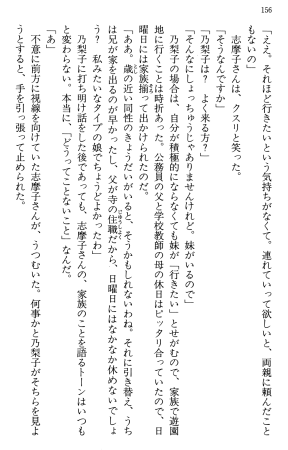 156
「ええ。それほど行きたいという気持ちがなくて。連れていって欲しいと、両親に頼んだこと
もないの」
志摩子さんは、クスリと笑った。
「そうなんですか」
「乃梨子は? よく来る方?」
「そんなにしょっちゅうじゃありませんけれど。妹がいるので」
乃梨子の場合は、自分が積極的にならなくても妹が「行きたい」とせがむので、家族で遊園
地に行くことは時折あった。公務員の父と学校教師の母の休日はピッタリ合っていたので、日
曜日には家族揃って出かけられたのだ。
「ああ。歳の近い同性のきょうだいがいると、そうかもしれないわね。それに引き替え、うち
は兄が家を出るのが早かったし、父が寺の住職だから、日曜日にはなかなか休めないでしょ
う? 私みたいなタイプの娘でちょうどよかったわ」
乃梨子に打ち明け話をした後であっても、志摩子さんの、家族のことを語るトーンはいつも
と変わらない。本当に、「どうってことないこと」なんだ。
「あ」
不意に前方に視線を向けていた志摩子さんが、うつむいた。何事かと乃梨子がそちらを見よ
うとすると、手を引っ張って止められた。